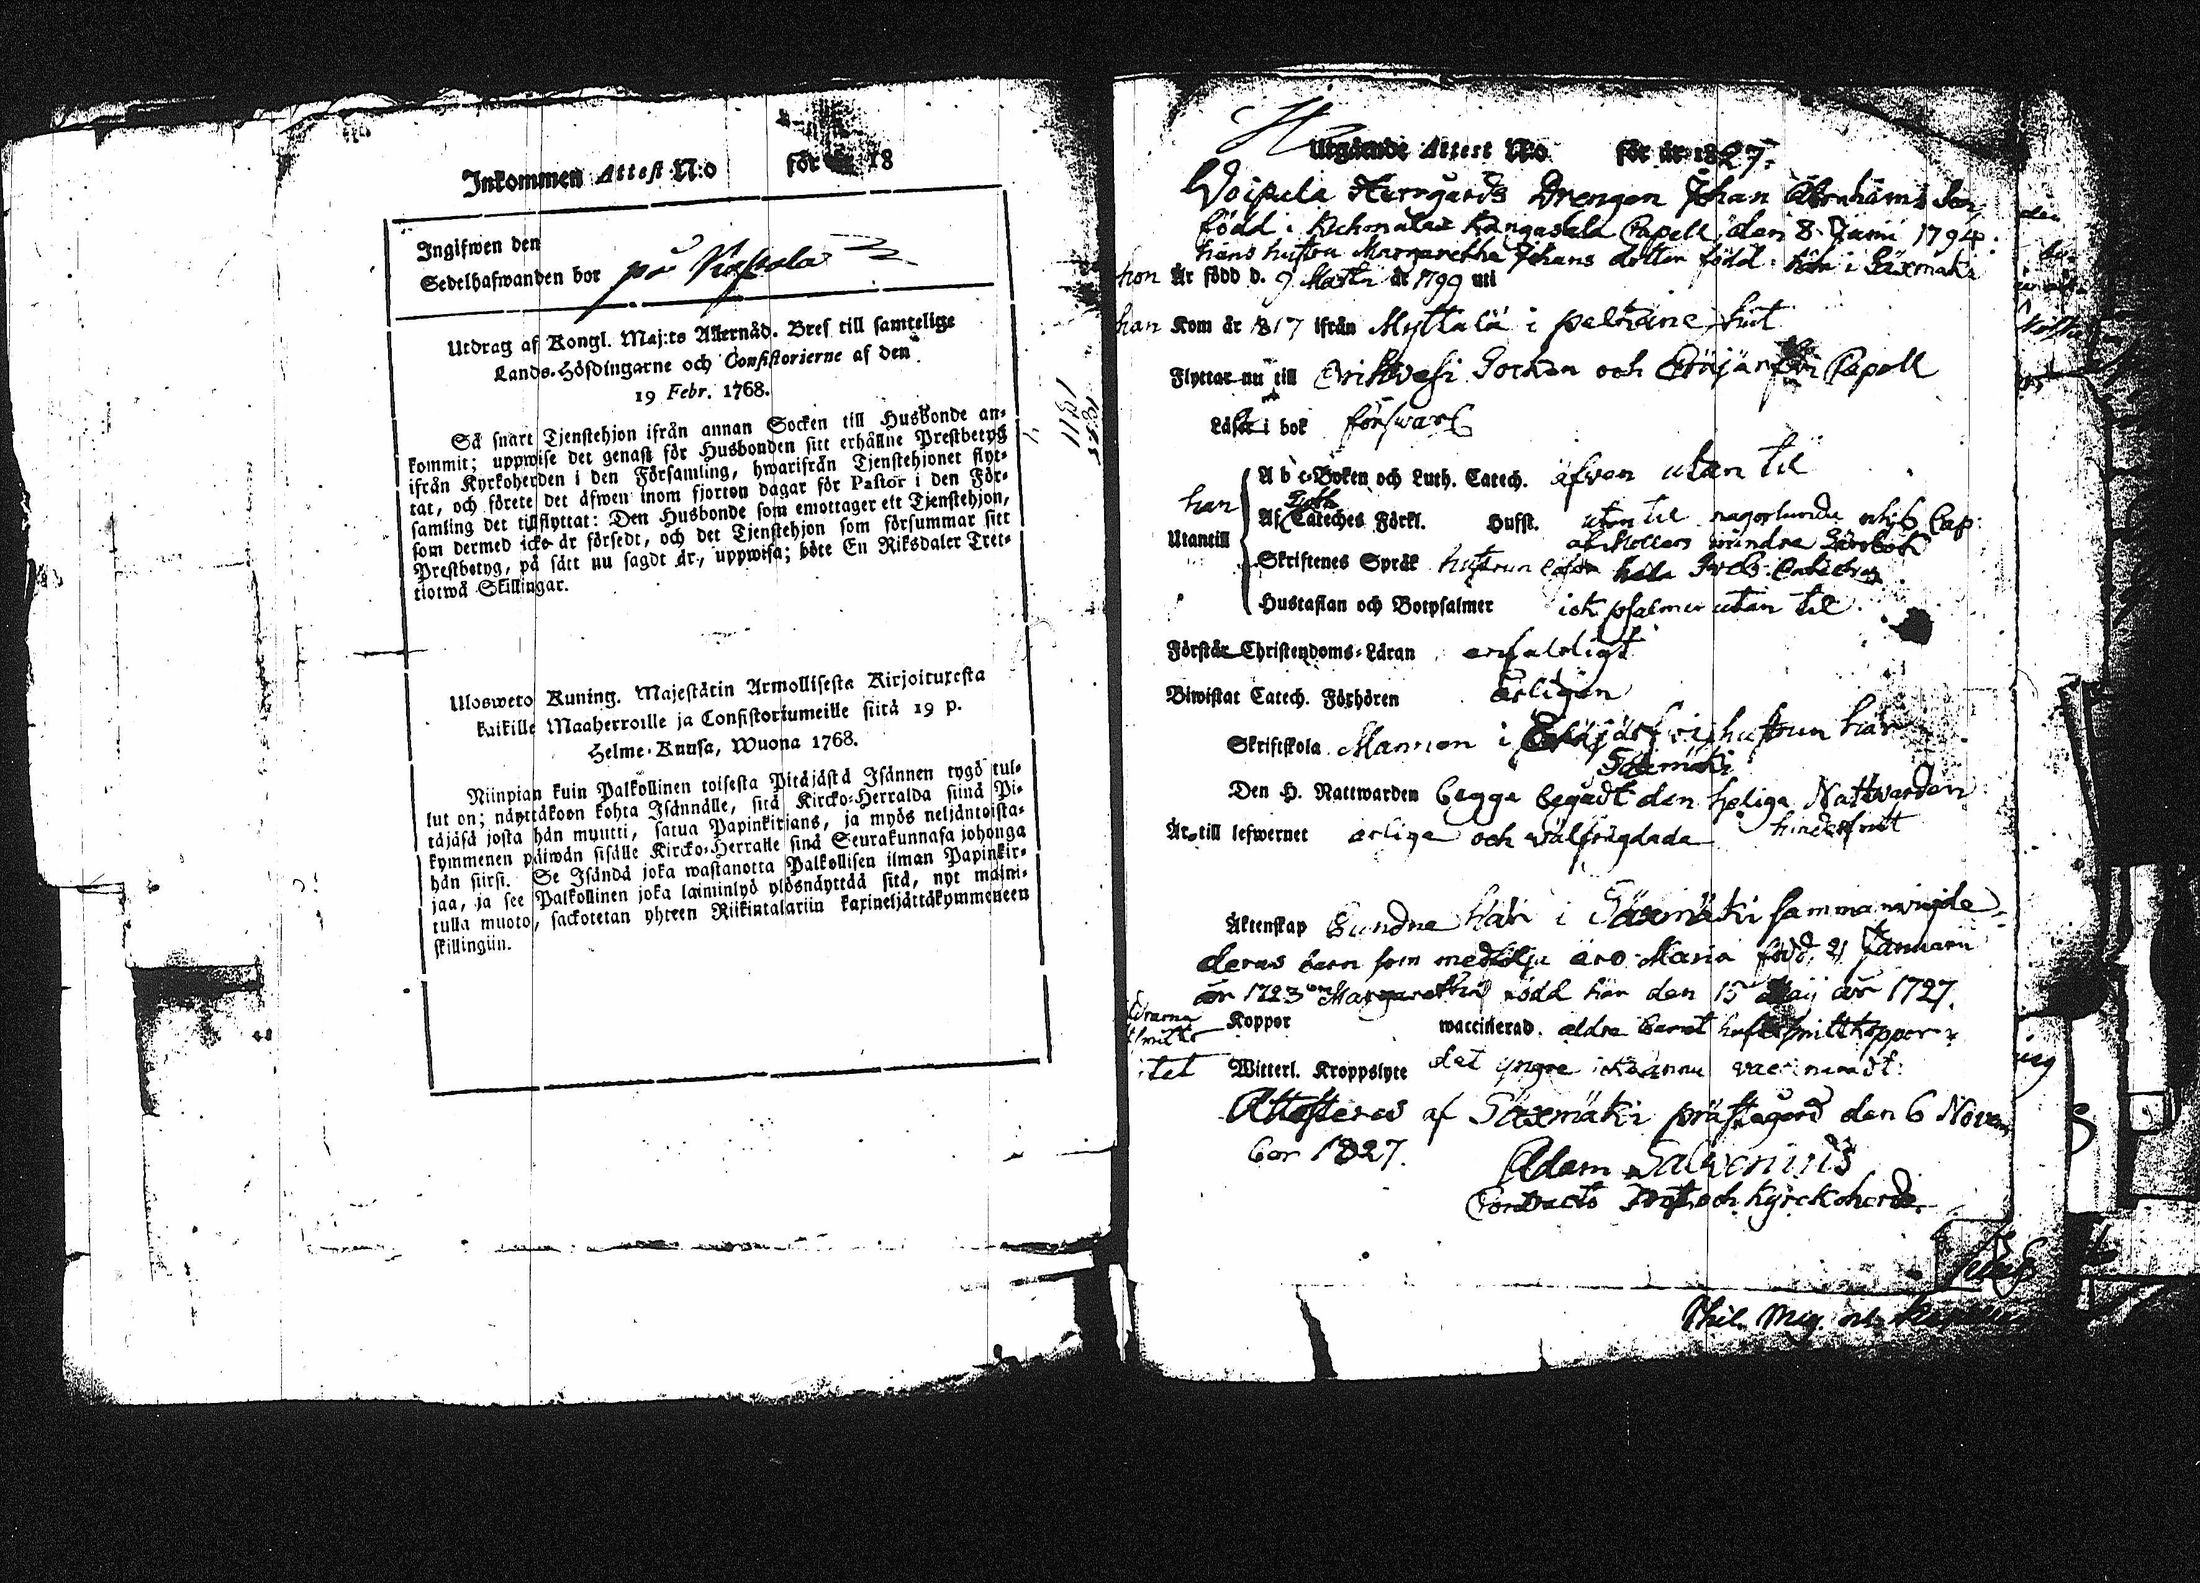 Inkommen Attest N:o för år 18
Ingifwen den
Sedelhafwanden bor på
Utdrag af Kongl. Maj:ts Allernåd. Bref till samtelige
Lands-Höfdingarne och Consistorierne af den
19 Febr. 1768.
Så snart Tjenstehjon ifrån annan Socken till Husbonde an-
kommit; uppwise det genast för Husbonden sitt erhållne Prestbetyg
ifrån Kyrkoherden i den Församling, hwarifrån Tjenstehjonet flyt-
tat, och förete det äfwen inom fjorton dagar för Pastor i den För-
samling det tillflyttat: Den Husbonde som emottager ett Tjenstehjon,
som dermed icke är försedt, och det Tjenstehjon som försummar sitt
Prestbetyg, på sätt nu sagdt är, uppwisa; böte En Riksdaler Tret-
tiotwå Skillingar.
Ulosweto Kuning. Majestätin Armollisesta Kirjoituxesta
kaikille Maaherroille ja Consistoriumeille siitä 19 p.
Helme-Kuusa, Wuona 1768.
Niinpian kuin Palkollinen toisesta Pitäjästä Isännen tygö tul-
lut on; näyttäkoon kohta Isännälle, sitä Kircko-Herralda siinä Pi-
täjäsä josta hän muutti, satua Papinkirjans, ja myös neljäntoista-
kymmenen päiwän sisälle Kircko-Herralle siinä Seurakunnasa johonga
hän siirsi. Se Isändä joka wastanotta Palkollisen ilman Papinkir-
jaa, ja see Palkollinen joka laiminlyö ylösnäyttää sitä, nyt maini-
tulla muoto, sackotetan yhteen Riikintalariin kaxineljättäkymmeneen
skillingiin.
Utgående Attest N:o för år 1827.
Woipala Herrgårds Drengen Johan Abrahams Son,
född i Kuhmalax Kangasala Capell den 8 Junii 1794:
hans hustru Margaretha Johans dotter född här i Säxmäki
hon Är född d. 9 Martii år 1799 uti
han Kom år 1817 ifrån Myttälä i pelkäne hit
Flyttar nu till Orihvesi Socken och Eräjärfvi Capell
Läser i bok försvarl
A b c-Boken och Luth. Catech. äfven utan til
han
Utantill
Af Cateches Förkl. Husst. utan til någorlunda och 6 Cap:
af Möllers mindre Lärobok
Skriftenes Språk hustrun hela Cateches
Hustaflan och Botpsalmer ock psalmer utan til
Förstår Christendoms-Läran enfaldligt
Biwistat Catech. Förhören årligen
Skriftskola Mannen i Eräjärfvi hustrun här
Säxmäki
Den H. Nattwarden begge begådt den heliga Nattvarden
Är till lefwernet ärliga och wälfrägdade hinderfrit
Äktenskap bundne här i Säxmäki sammanvigde
deras barn som medfölja äro Maria född 21 Januarii
år 1723 och Margaretha född här den 15 Maij år 1727.
Koppor waccinerad. äldre barnet haft smittkoppor
Witterl. Kroppslyte det yngre icke ännu vaccineradt:
Attesteras af Säxmäki prästegård den 6 Novem
ber 1827.
Adam Salvenius
Contracts Prost och Kyrckoherde
Phil. Mag. och